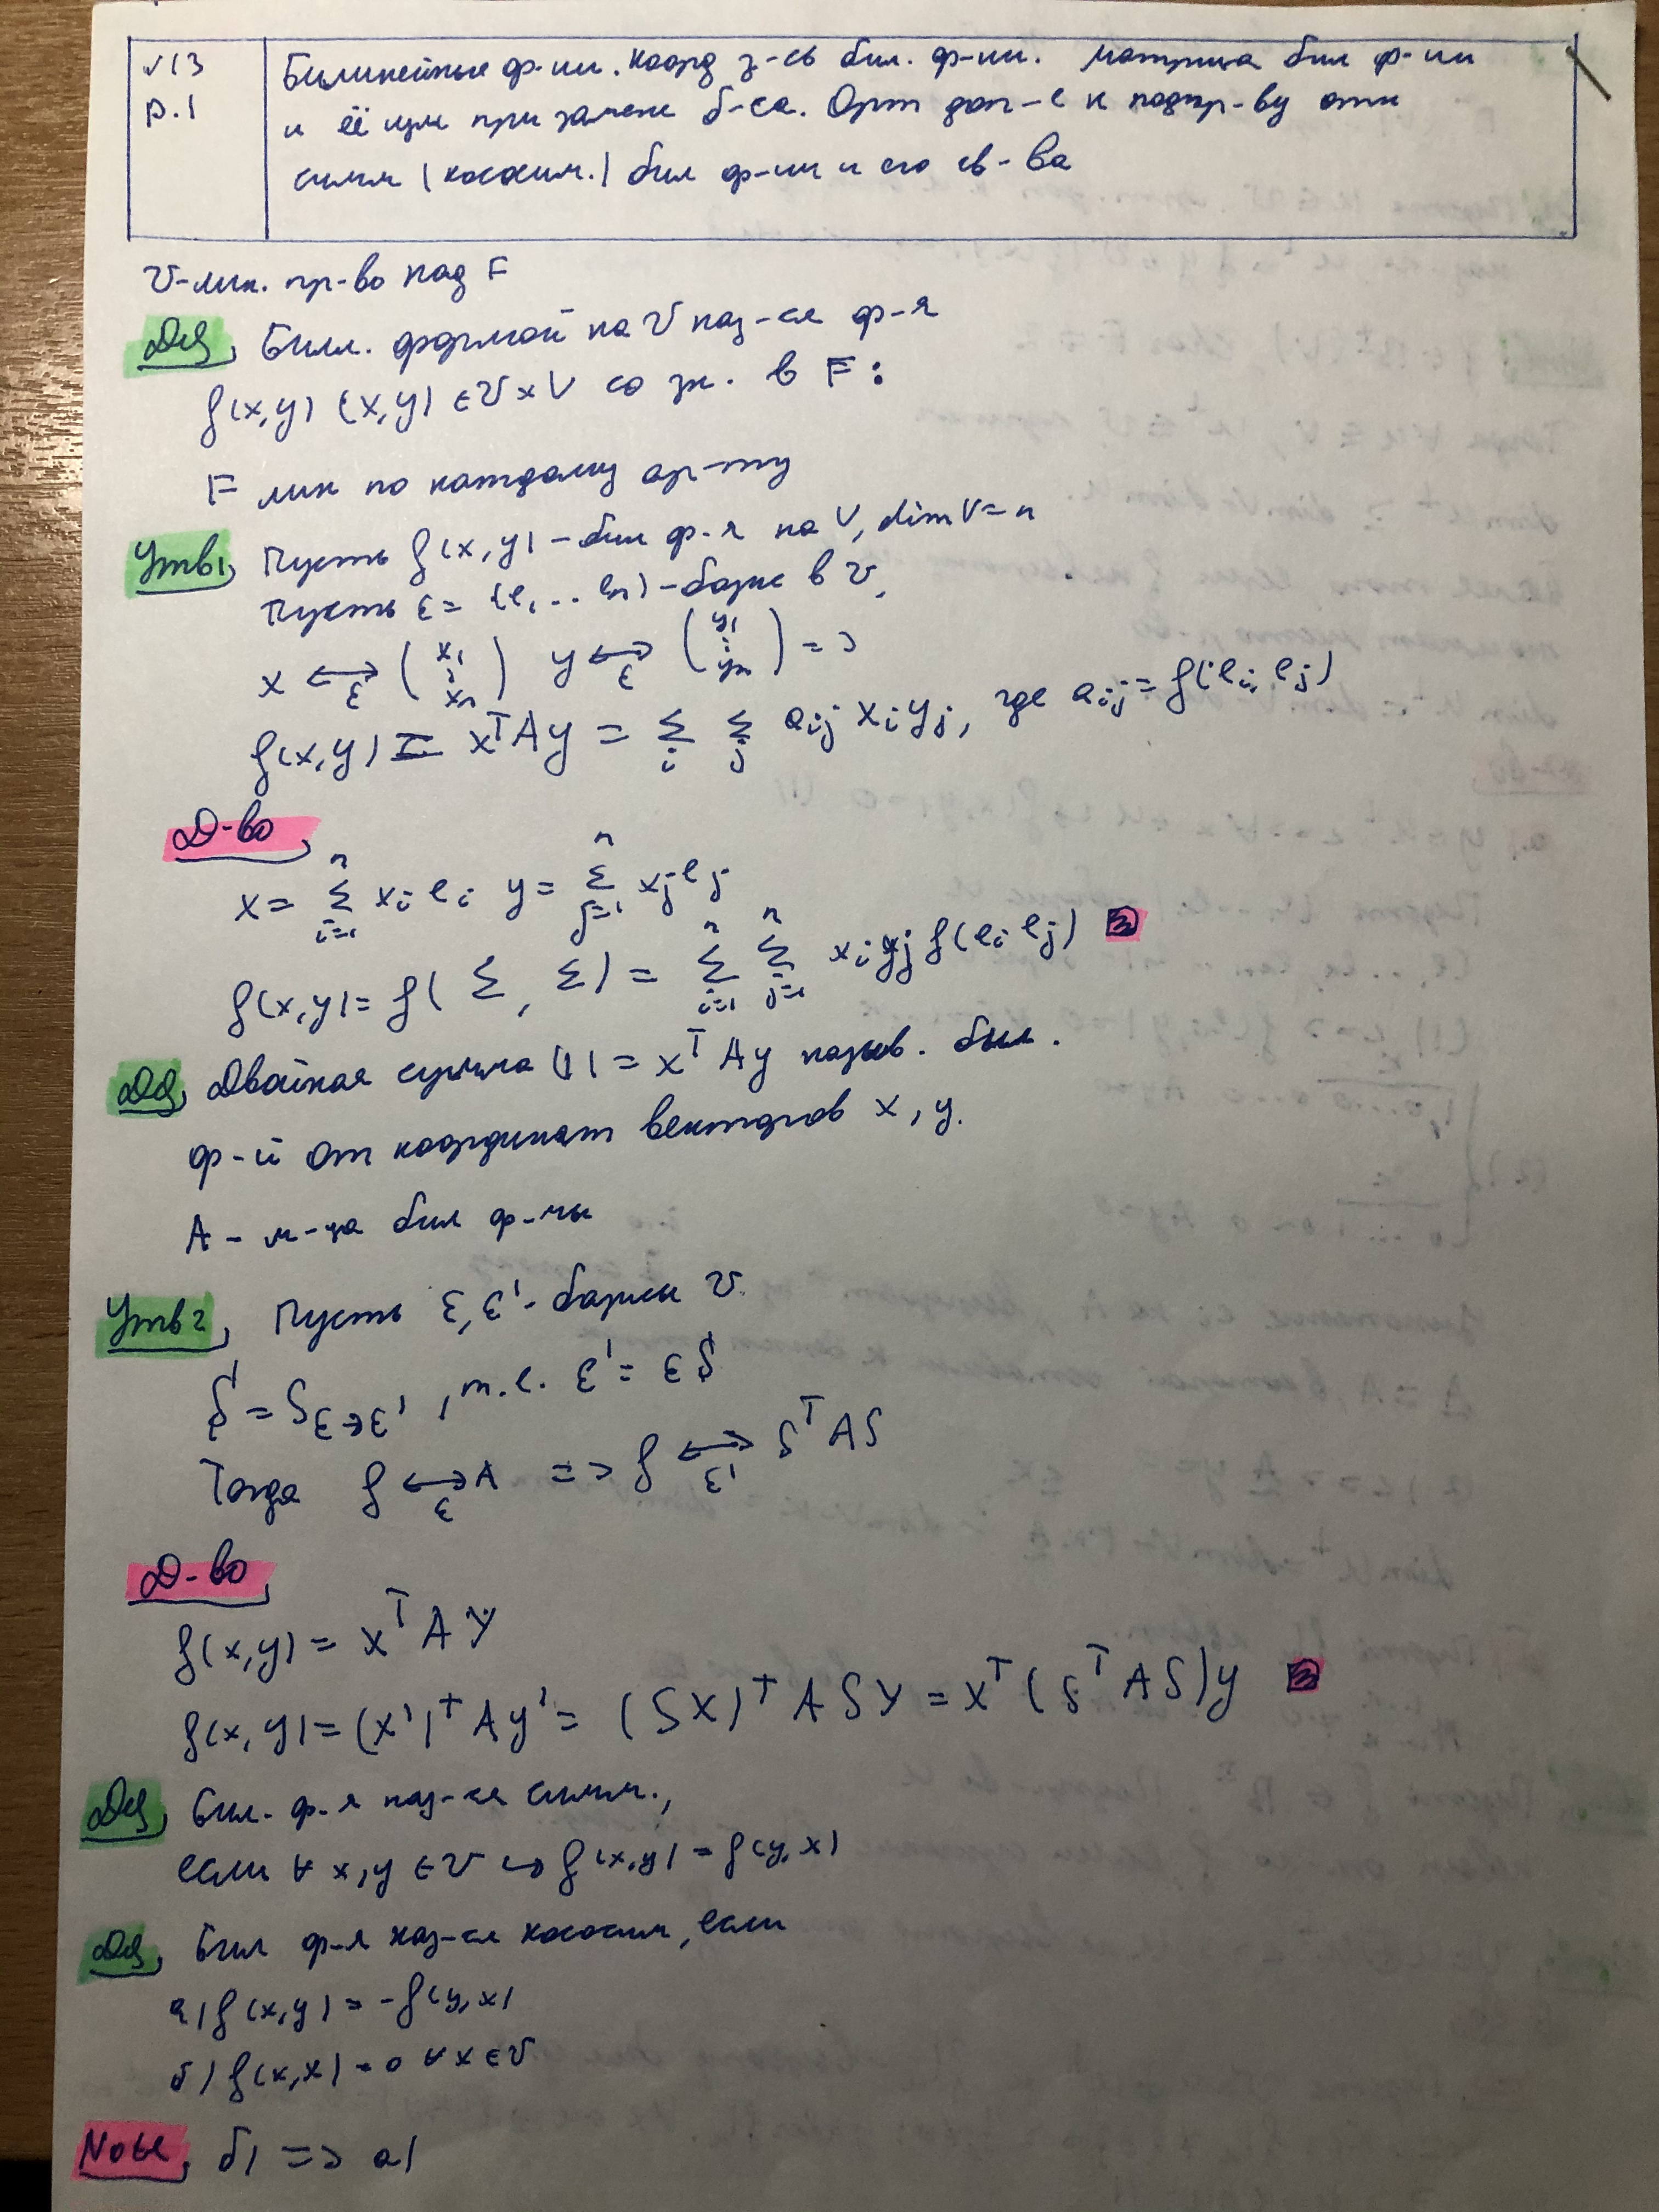 √13
р.1
Билинейные ф-ии. Коорд з-сь бил. ф-ии. Матрица бил ф-ии
и её изм при замене б-са. Орт доп-е к подпр-ву отн
симм (кососим.) бил ф-ии и его св-ва
V-лин. пр-во над F
Def, Билл. формой на V наз-ся ф-я
f(x,y) (x,y) ∈ V×V со зн. в F:
F лин по каждому ар-ту
Утв1, Пусть f(x,y) - бил ф-я на V, dim V = n
Пусть ε = (e₁ ... eₙ) - базис в V,
x ⟷_ε (x₁ ⋮ xₙ) y ⟷_ε (y₁ ⋮ yₙ) =>
f(x,y) = xᵀAy = Σ_i Σ_j aᵢⱼ xᵢ yⱼ, где aᵢⱼ = f(eᵢ, eⱼ)
Д-во,
x = Σ_{i=1}^n xᵢ eᵢ y = Σ_{j=1}^n xⱼ eⱼ
f(x,y) = f( Σ , Σ ) = Σ_{i=1}^n Σ_{j=1}^n xᵢ yⱼ f(eᵢ eⱼ)
Def, Двойная сумма (1) = xᵀ Ay назыв. бил.
ф-й от координат векторов x, y.
A - м-ца бил ф-мы
Утв2, Пусть ε, ε' - базисы V.
S = S_{ε→ε'}, т.е. ε' = εS
Тогда f ⟷_ε A => f ⟷_ε' SᵀAS
Д-во,
f(x,y) = xᵀ A Y
f(x,y) = (x')ᵀ Ay' = (SX)ᵀ ASY = xᵀ (SᵀAS)y
Def, Бил. ф-я наз-ся симм.,
если ∀ x,y ∈ V ↪ f(x,y) = f(y,x)
Def, Бил ф-я наз-ся кососим, если
а) f(x,y) = -f(y,x)
б) f(x,x) = 0 ∀ x ∈ V
Note, б) => а)